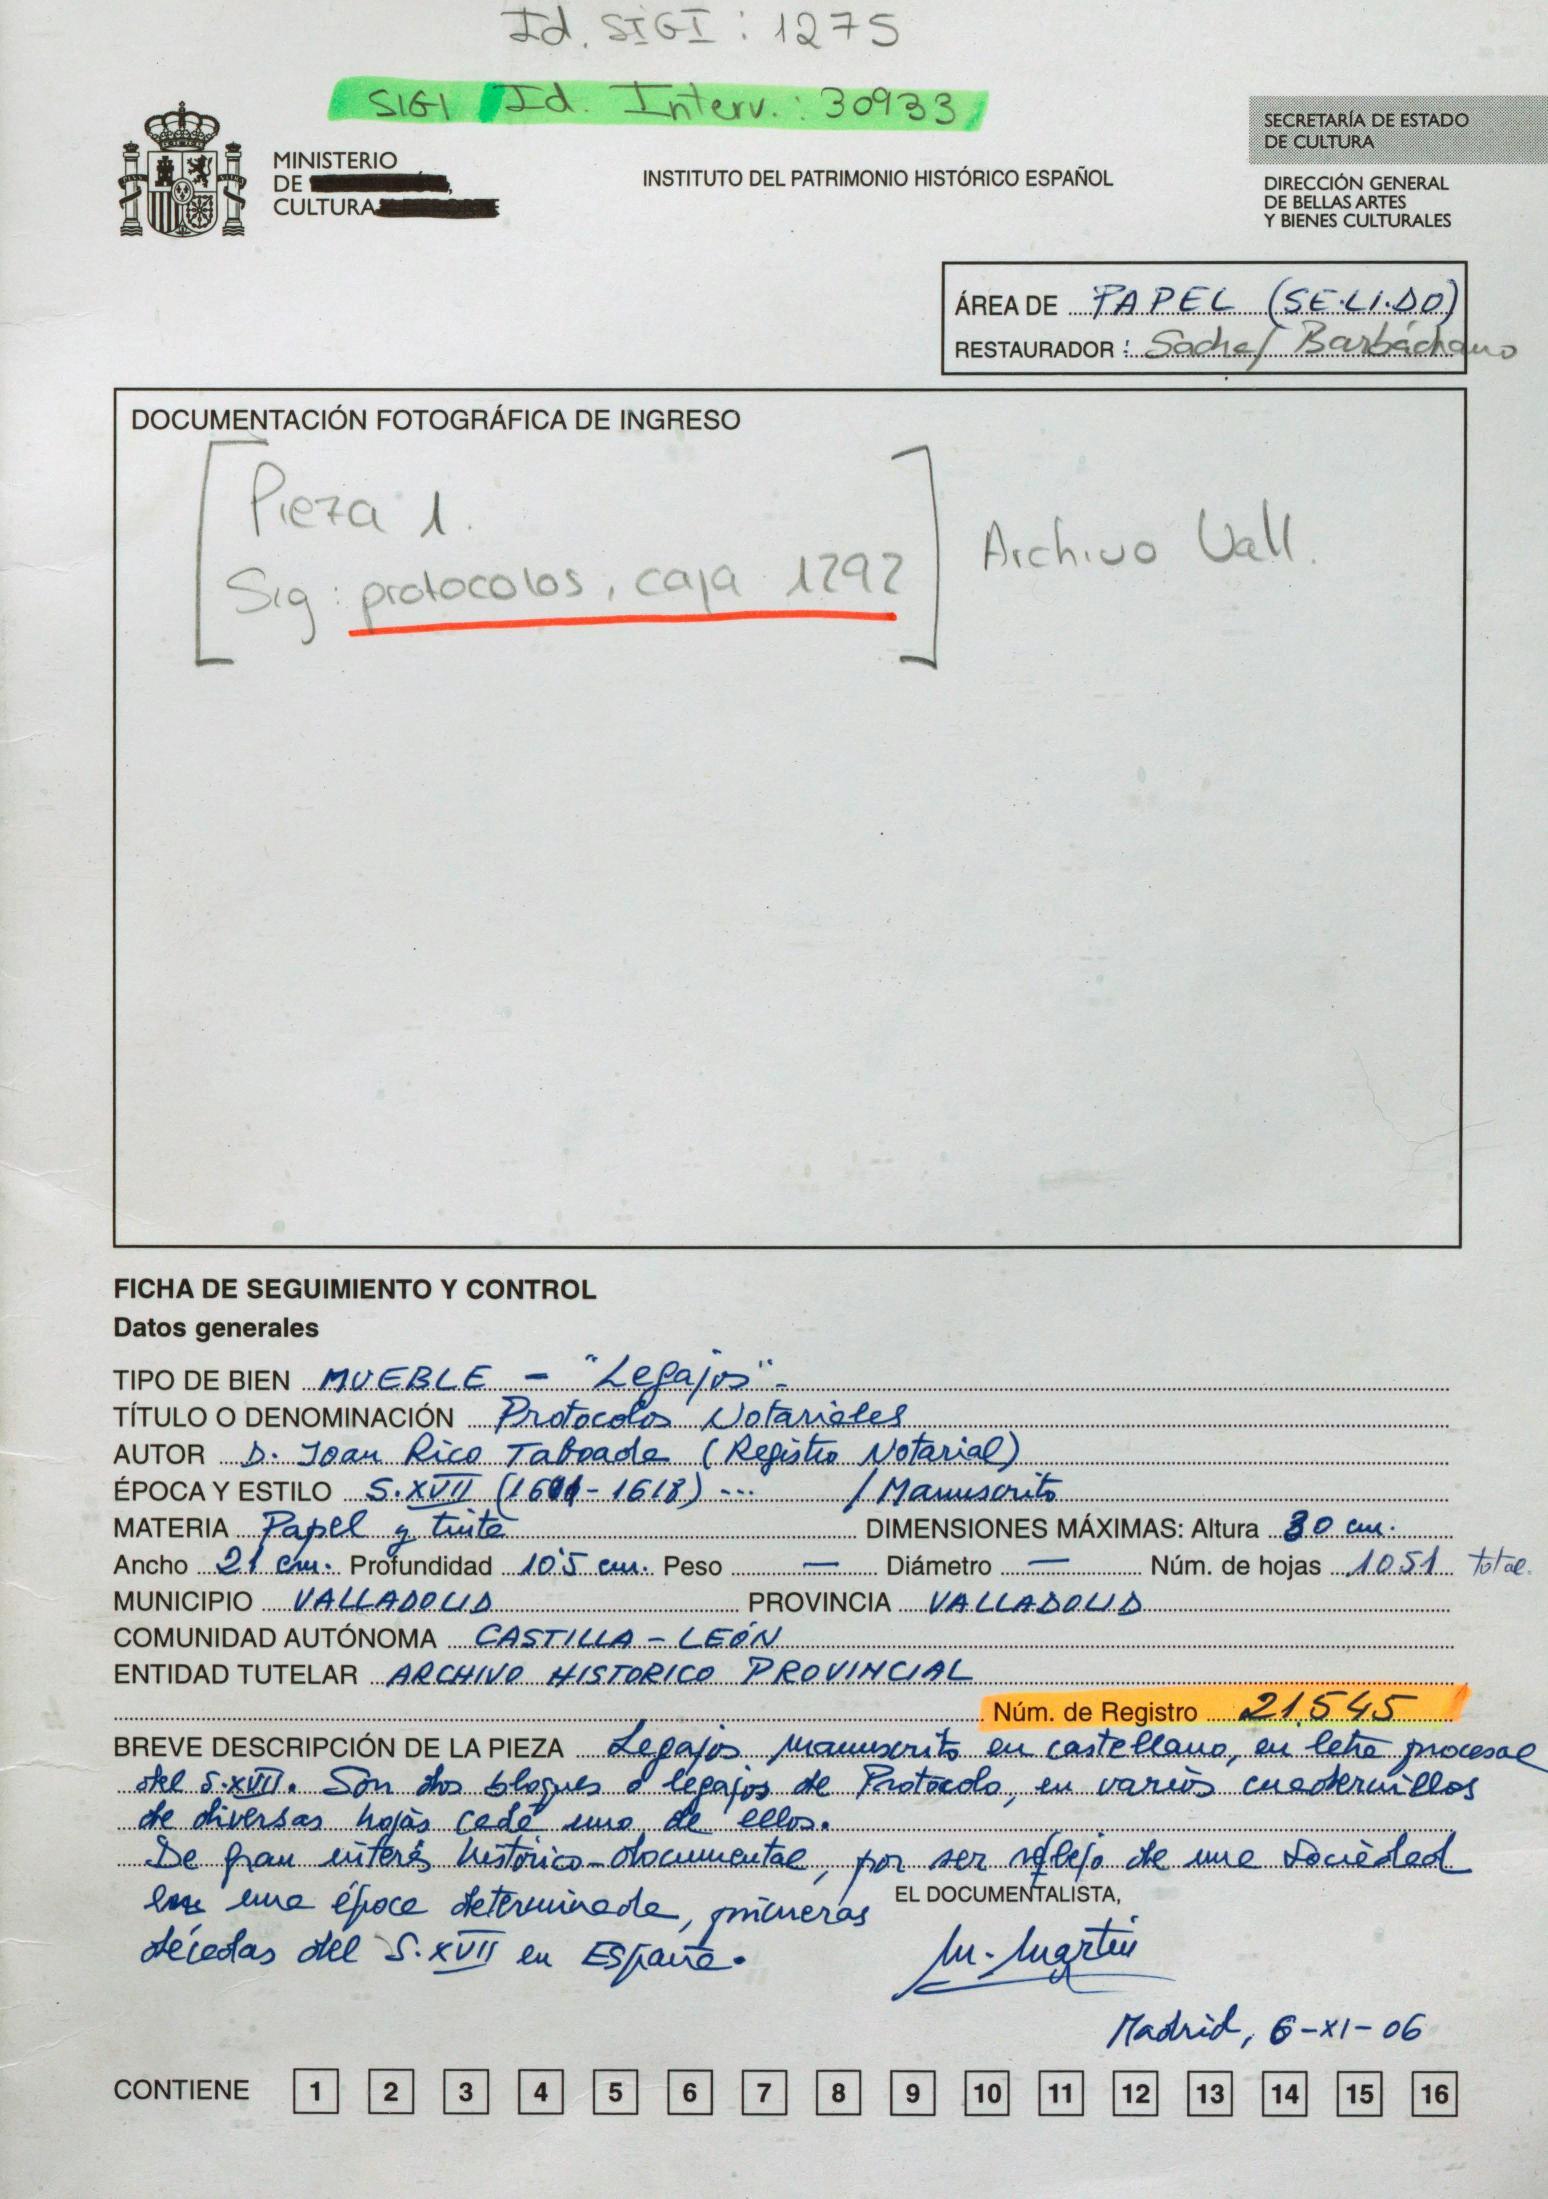 Id. SIGI : 1275
SIGI Id. Interv. : 30933
MINISTERIO
DE
CULTURA
INSTITUTO DEL PATRIMONIO HISTÓRICO ESPAÑOL
SECRETARÍA DE ESTADO
DE CULTURA
DIRECCIÓN GENERAL
DE BELLAS ARTES
Y BIENES CULTURALES
ÁREA DE PAPEL (SE.LI.DO)
RESTAURADOR : Barbáchano
DOCUMENTACIÓN FOTOGRÁFICA DE INGRESO
Pieza 1.
Sig : protocolos, caja 1292
Archivo Vall.
FICHA DE SEGUIMIENTO Y CONTROL
Datos generales
TIPO DE BIEN MUEBLE - "Legajos" -
TÍTULO O DENOMINACIÓN Protocolos Notariales
AUTOR D. Joan Rico Taboada (Registro Notarial)
ÉPOCA Y ESTILO S.XVII (1601-1618) --- / Manuscrito
MATERIA Papel y tinta DIMENSIONES MÁXIMAS: Altura 30 cm.
Ancho 21 cm. Profundidad 10'5 cm. Peso — Diámetro — Núm. de hojas 1051 total.
MUNICIPIO VALLADOLID PROVINCIA VALLADOLID
COMUNIDAD AUTÓNOMA CASTILLA - LEÓN
ENTIDAD TUTELAR ARCHIVO HISTORICO PROVINCIAL
Núm. de Registro 21.545
BREVE DESCRIPCIÓN DE LA PIEZA Legajos manuscrito en castellano, en letra procesal
del S.XVII. Son dos bloques o legajos de Protocolo, en varios cuadernillos
de diversas hojas cada uno de ellos.
De gran interés histórico-documental, por ser reflejo de una Sociedad
en una época determinada, primeras
décadas del S.XVII en España.
EL DOCUMENTALISTA,
M. Martín
Madrid, 6-XI-06
CONTIENE 1 2 3 4 5 6 7 8 9 10 11 12 13 14 15 16